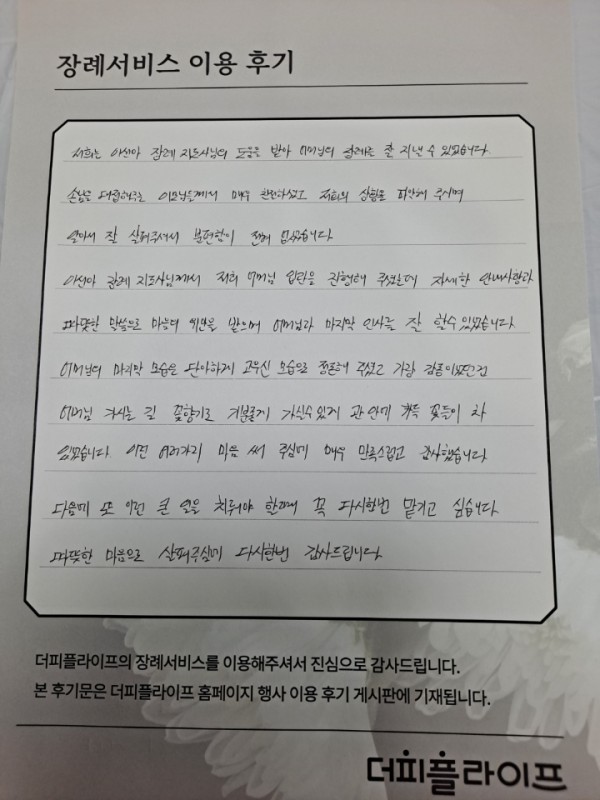 장례서비스 이용 후기
저희는 이선아 장례 지도사님의 도움을 받아 어머님의 장례를 잘 지낼 수 있었습니다.
손님을 대접해주는 이모님들께서 매우 친절하셨고 저희의 상황을 파악해 주시며
알아서 잘 살펴주셔서 불편함이 전혀 없었습니다
이선아 장례 지도사님께서 저희 어머님 입관을 진행해 주셨는데 자세한 안내사항과
따뜻한 말씀으로 마음의 위안을 받으며 어머님과 마지막 인사를 잘 할수 있었습니다.
어머님의 마지막 모습을 단아하게 고우신 모습으로 정돈해 주셨고 가장 감동이였던건
어머님 가시는 길 꽃향기로 기분좋게 가실수 있게 관 안에 가득 꽃들이 차
있었습니다 이런 여러가지 마음 써 주심에 매우 만족스럽고 감사했습니다
다음에 또 이런 큰 일을 치뤄야 한다면 꼭 다시한번 맡기고 싶습니다
따뜻한 마음으로 살펴주심에 다시한번 감사드립니다.
더피플라이프의 장례서비스를 이용해주셔서 진심으로 감사드립니다.
본 후기문은 더피플라이프 홈페이지 행사 이용 후기 게시판에 기재됩니다.
더피플라이프